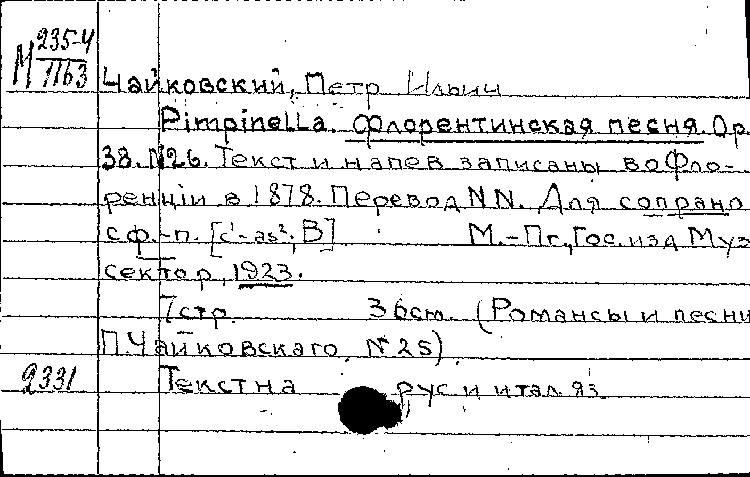 М 235-4
1163
Чайковский, Петр Ильич
Pimpinella. Флорентинская песня. Op.
38. №6. Текст и напев записаны во Фло-
ренціи в 1878. Перевод NN. Для сопрано
с ф.-п. [c'-as²; B] М.-Пг., Гос. изд. Муз
сектор, 1923.
7 стр. 36 см. (Романсы и песни
П. Чайковскаго, №25)
2331 Текст на рус. и итал. яз.